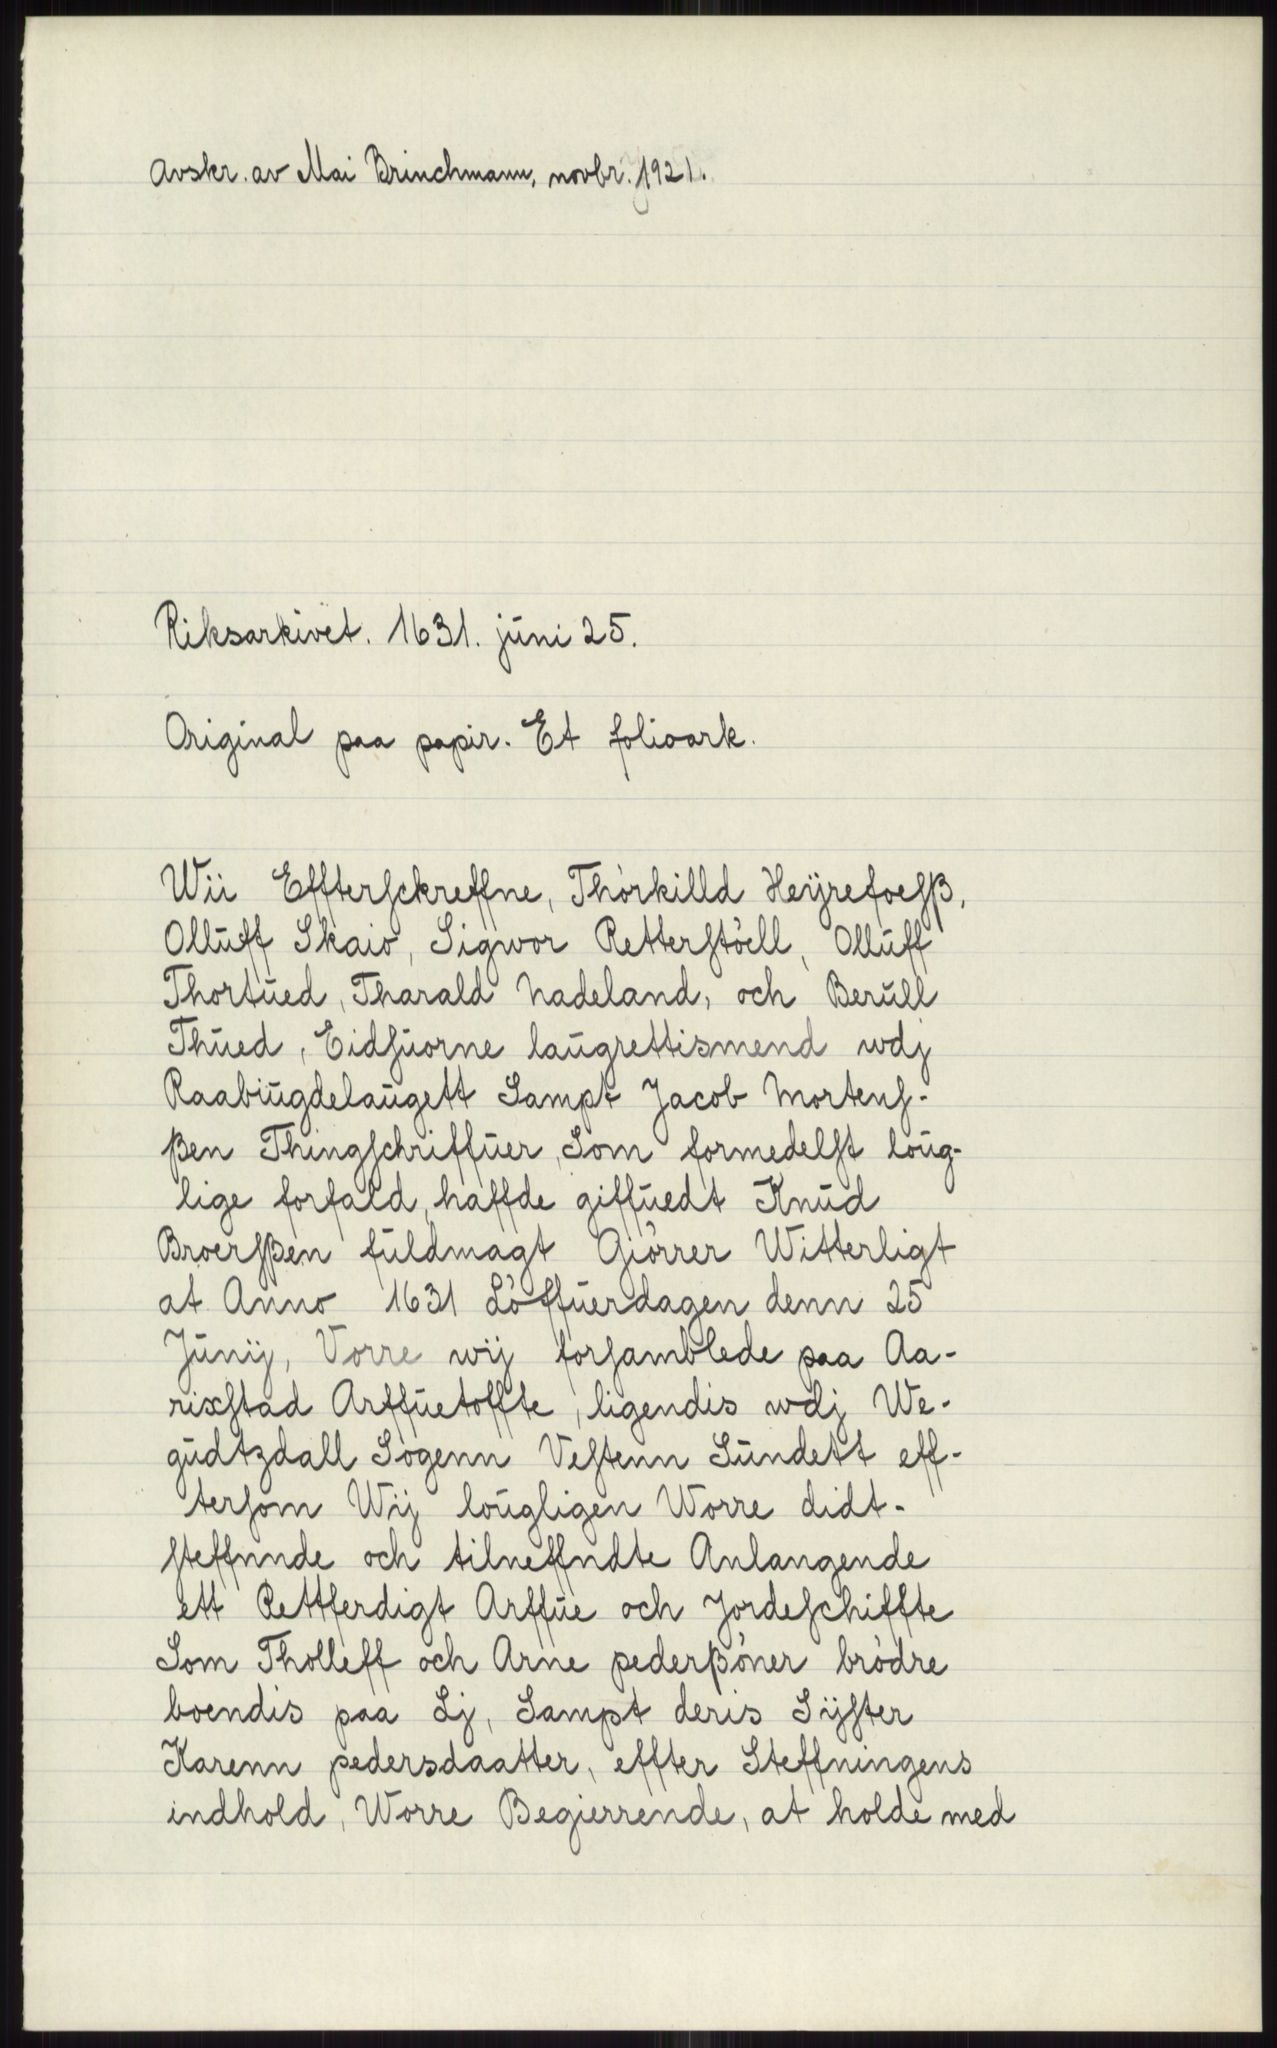 Avskr. av Mai Brinchmann, novbr. 1921.
Riksarkivet. 1631. juni 25.
Original paa papir. Et folioark.
Wii Effterſckreffne, Thòrkilld Heÿrefoeſß,
Ollūff Skaiò, Sigwor Retterſtòell, Ollūff
Thortūed, Tharald Nadeland, och Berūll
Thūed, Eidſūorne laūgrettismend wdj
Raabiūgdelaūgett Sampt Jacob Mortenſ-
ßen Thingſchriffūer, Som formedelſt loūg-
lige forfald, haffde giffūedt Knūd
Broerſßen fūldmagt Giòrrer Witterligt
at Anno 1631 Lòffūerdagen denn 25
Jūnij, Vorre wij forſamblede paa Aa-
rixſtad Arffūetoffte, ligendis wdj We-
gūdtzdall Sogenn Veſtenn Sūndett eff-
terſom Wij loūgligen Worre didt-
ſteffnnde och tilneffndte Anlangende
ett Rettferdigt Arffūe och Jordeſchiffte
Som Tholleff och Arne pederßòner bròdre
boendis paa Lj, Sampt deris Sÿſter
Karenn pedersdaatter, effter Steffningens
indhold, Worre Begierrende, at holde med